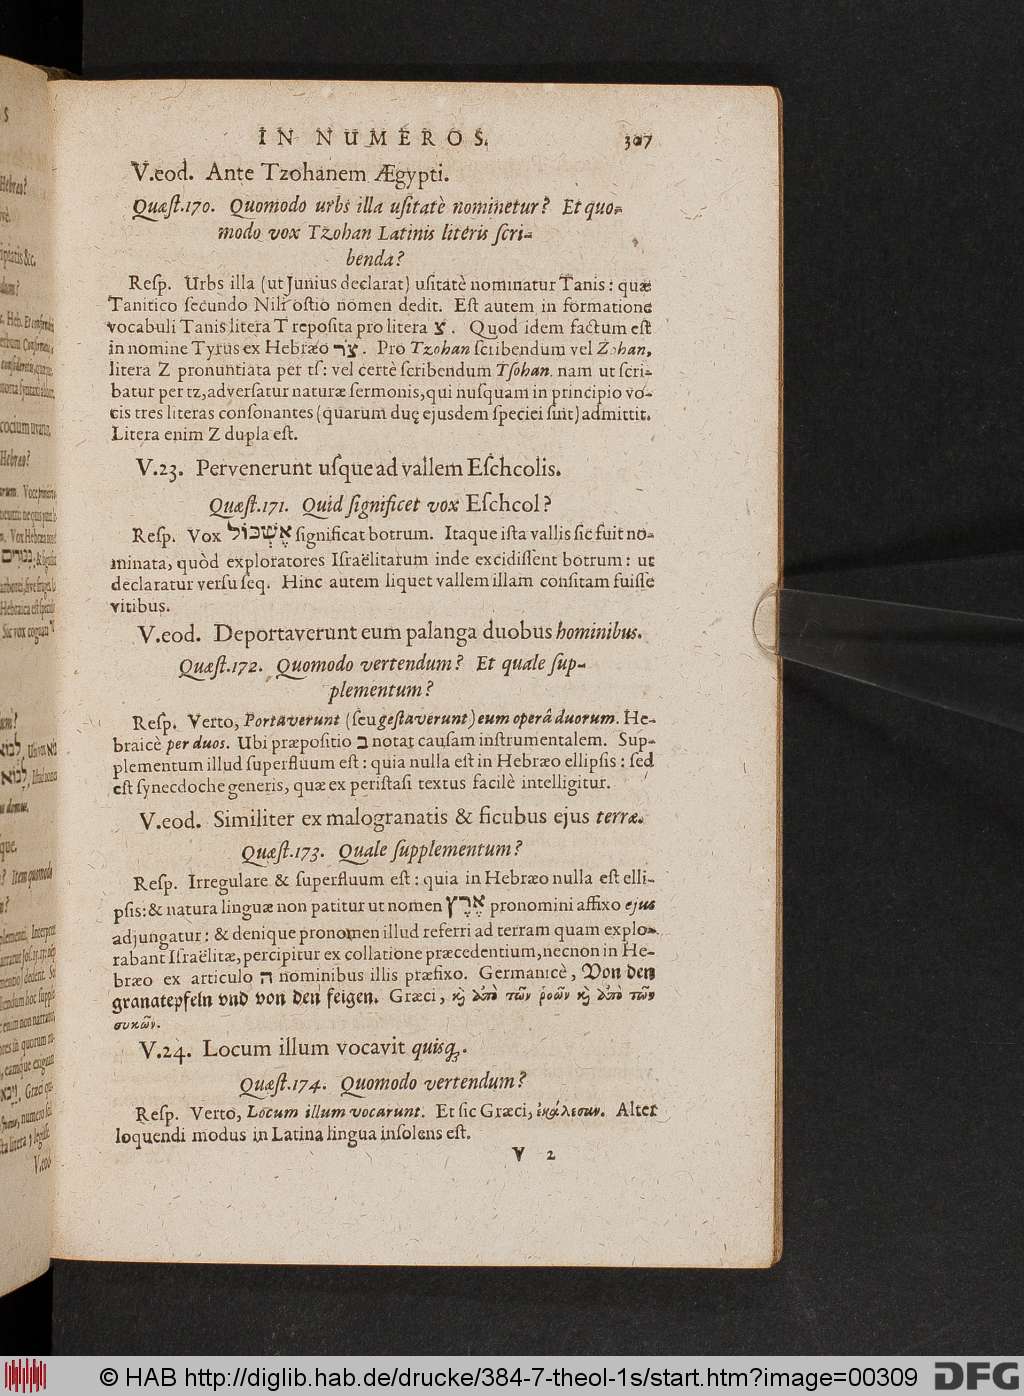 IN NUMEROS. 307
V.eod. Ante Tzohanem Ægypti.
Quæst.170. Quomodo urbs illa usitatè nominetur? Et quo-
modo vox Tzohan Latinis literis scri-
benda?
Resp. Urbs illa (ut Junius declarat) usitatè nominatur Tanis: quæ
Tanitico secundo Nili ostio nomen dedit. Est autem in formatione
vocabuli Tanis litera T reposita pro litera צ. Quod idem factum est
in nomine Tyrus ex Hebræo צֹר. Pro Tzohan scribendum vel Zohan,
litera Z pronuntiata per ts: vel certè scribendum Tsohan. nam ut scri-
batur per tz, adversatur naturæ sermonis, qui nusquam in principio vo-
cis tres literas consonantes (quarum duę ejusdem speciei sint) admittit.
Litera enim Z dupla est.
V.23. Pervenerunt usque ad vallem Eschcolis.
Quæst.171. Quid significet vox Eschcol?
Resp. Vox אֶשְׁכּוֹל significat botrum. Itaque ista vallis sic fuit no-
minata, quòd exploratores Israëlitarum inde excidissent botrum: ut
declaratur versu seq. Hinc autem liquet vallem illam consitam fuisse
vitibus.
V.eod. Deportaverunt eum palanga duobus hominibus.
Quæst.172. Quomodo vertendum? Et quale sup-
plementum?
Resp. Verto, Portaverunt (seu gestaverunt) eum operâ duorum. He-
braicè per duos. Ubi præpositio ב notat causam instrumentalem. Sup-
plementum illud superfluum est: quia nulla est in Hebræo ellipsis: sed
est synecdoche generis, quæ ex peristasi textus facilè intelligitur.
V.eod. Similiter ex malogranatis & ficubus ejus terræ.
Quæst.173. Quale supplementum?
Resp. Irregulare & superfluum est: quia in Hebræo nulla est elli-
psis: & natura linguæ non patitur ut nomen אֶרֶץ pronomini affixo ejus
adjungatur: & denique pronomen illud referri ad terram quam explo-
rabant Israëlitæ, percipitur ex collatione præcedentium, necnon in He-
bræo ex articulo ה nominibus illis præfixo. Germanicè, Von den
granatepfeln vnd von den feigen. Græci, κỳ ἀπὸ τῶν ῥοῶν κỳ ἀπὸ τῶν
συκῶν.
V.24. Locum illum vocavit quisq;.
Quæst.174. Quomodo vertendum?
Resp. Verto, Locum illum vocarunt. Et sic Græci, ἐκάλεσαν. Alter
loquendi modus in Latina lingua insolens est.
V 2
© HAB http://diglib.hab.de/drucke/384-7-theol-1s/start.htm?image=00309
DFG